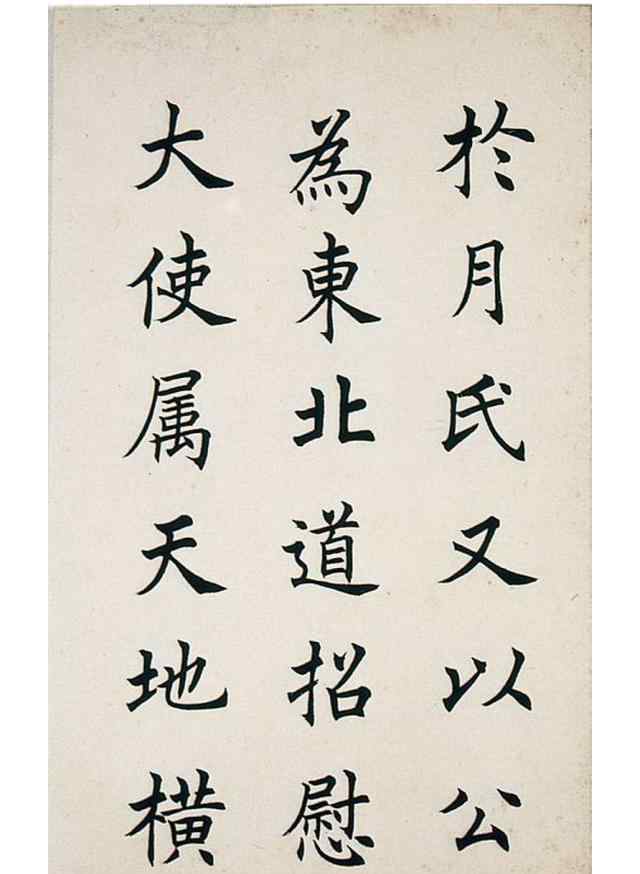 於月氏又以公
為東北道招慰
大使属天地橫